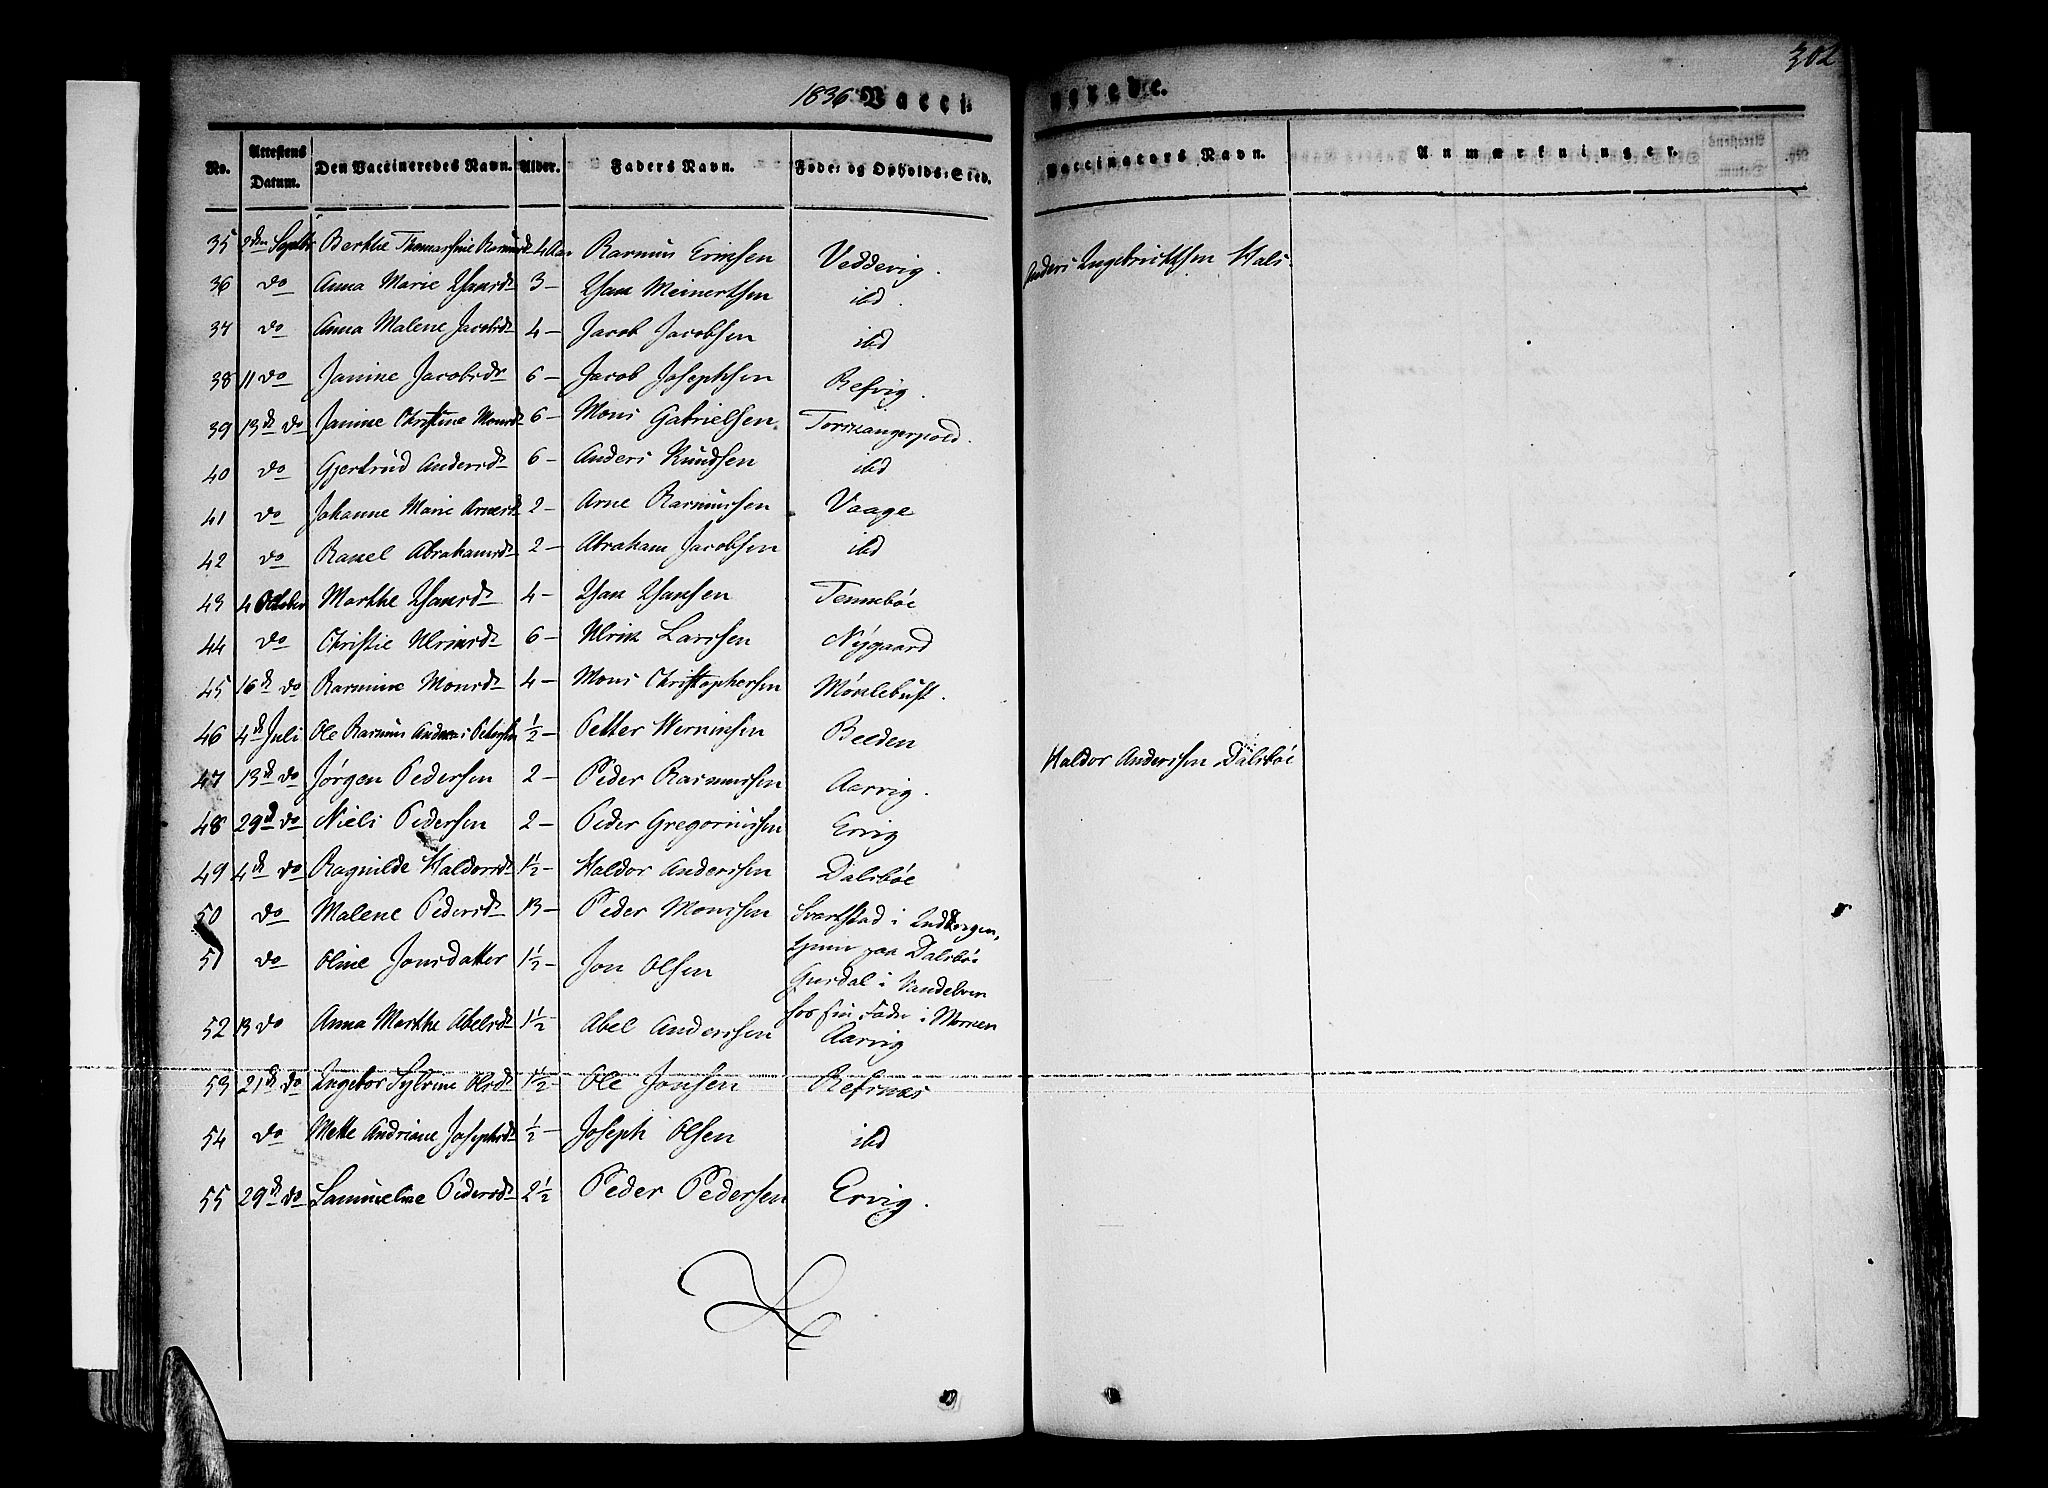 302
1836 Vacci nerede.
No. Attestens Datum. Den Vaccineredes Navn. Alder. Faders Navn. Føde- og Opholds-Sted. Vaccinators Navn. Anmærkninger.
35 2den Septbr Berthe Thomassine Rasmusdr 4 Aar Rasmus Ericksen Veddevig. Anders Ingebricktsen Hals
36 do Anna Marie Hansdr 3 – Hans Meinertsen ibd.
37 do Anna Malene Jacobsdr 4 – Jacob Jacobsen ibd
38 11 do Janine Jacobsdr 6 – Jacob Josephsen Refvig.
39 13de do Janine Christine Monsdr 6 – Mons Gabrielsen.
40 do Gjertrud Andersdr 6 – Anders Knudsen ibd
41 do Johanne Marie Arnesdr 2 – Arne Rasmussen Vaage
42 do Rachel Abrahamsdr 2 – Abraham Jacobsen ibd
43 4 October Marthe Hansdr 4 – Hans Hansen Tennebøe
44 do Christie Ulriksdr 6 – Ulrik Larssen Nÿgaard
45 16de do Rasmine Monsdr 4 – Mons Christophersen Møklebust.
46 4de Juli Ole Rasmus Andreas Pettersen ½ – Petter Werninsen Beeden
47 13de do Jørgen Pedersen 2 – Peder Rasmussen Aarvig. Haldor Anderssen Dalsbøe
48 29de do Niels Pedersen 2 – Peder Gregoriussen Ervig
49 4de do Ragnilde Haldorsdr 1½ – Haldor Anderssen Dalsbøe
50 do Malene Pedersdr 13 – Peder Monssen Svartstad i Indbergen,
tjener paa Dalsbøe
51 do Oline Jonsdatter 1½ – Jon Olsen Gursdal i Vandelven
hos sin Fader i
52 13 do Anna Marthe Abelsdr 1½ Abel Anderssen Aarvig
53 21de do Ingebor Sylvine Olsdr 1½ – Ole Jonsen Refsnæs
54 do Mette Andriane Josephsdr ½ – Joseph Olsen ibd
55 29de do Samueline Pedersdr 2½ Peder Pedersen Ervig.